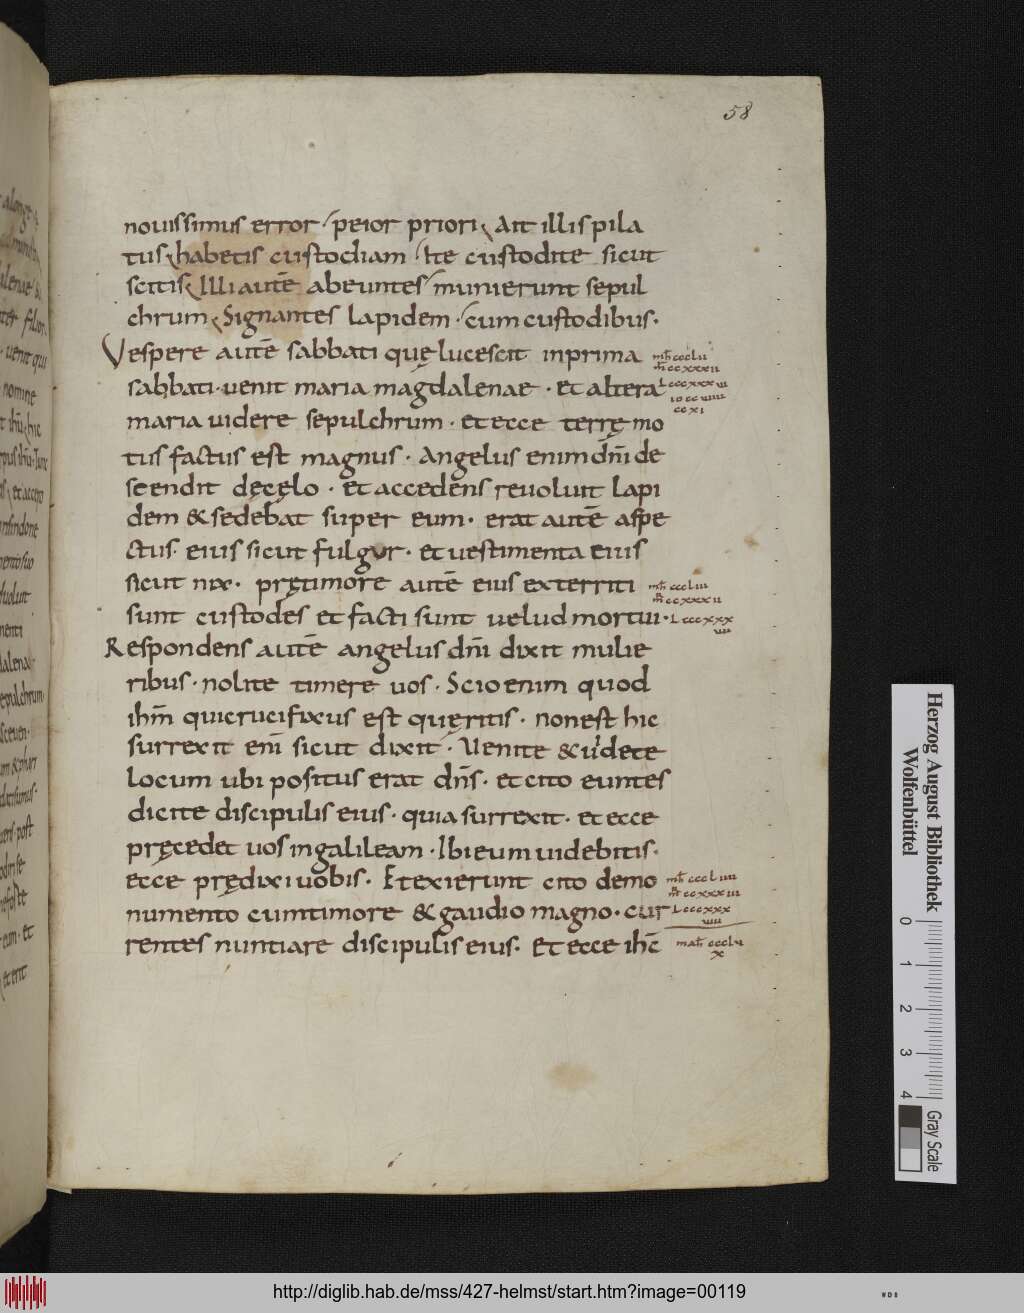 58
nouissimus error peior priori Ait illis pila
tus habetis custodiam Ite custodite sicut
scitis Illi autē abeuntes munierunt sepul
chrum Signantes lapidem cum custodibus·
Vespere autē sabbati quę lucescit inprima
mͭ ccclii
mͬ ccxxxii
sabbati· uenit maria magdalenae · et altera
L cccxxxvi
io ccviiii
maria uidere sepulchrum · et ecce terrę mo
ccxi
tus factus est magnus · Angelus enim dn̄i de
scendit dęcęlo · et accedens reuoluit lapi
dem & sedebat super eum· erat autē aspe
ctus· eius sicut fulgur· et uestimenta eius
sicut nix· prętimore autē eius exterriti
mͭ cccliii
mͬ ccxxxii
sunt custodes et facti sunt uelud mortui·
L cccxxx
Respondens autē angelus dn̄i dixit mulie
ribus· nolite timere uos· Scio enim quod
ihm̄ quicrucifixus est quęritis· non est hic
surrexit eni̅ sicut dixit· Venite & uidete
locum ubi positus erat dn̄s· et cito euntes
dicite discipulis eius· quia surrexit· et ecce
pręcedet uos in galileam· Ibi eum uidebitis·
ecce prędixi uobis· Et exierunt cito demo
mͭ cccliiii
mͬ ccxxxiii
numento cumtimore & gaudio magno· cur
L cccxxx
rentes nuntiare discipulis eius· Et ecce ihc̄
mat̄ ccclv
x
Herzog August Bibliothek
Wolfenbüttel
0 1 2 3 4
Gray Scale
http://diglib.hab.de/mss/427-helmst/start.htm?image=00119